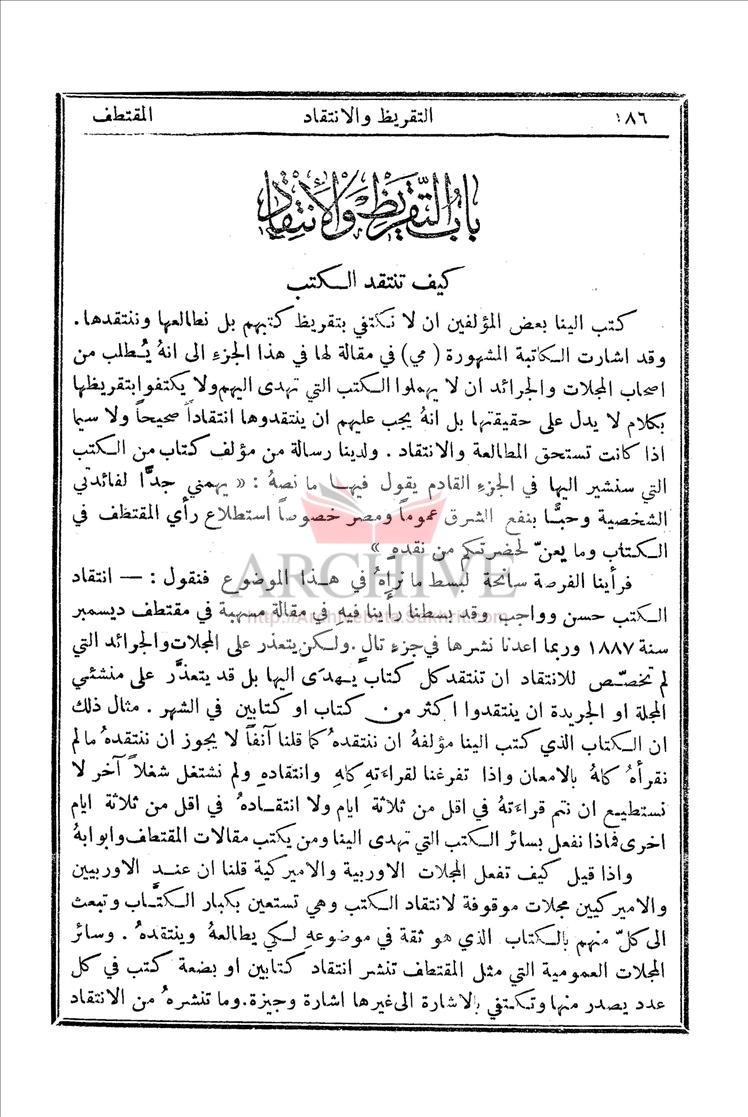 ١٨٦ التقريظ والانتقاد المقتطف
باب التقريظ والانتقاد
كيف تنتقد الكتب
كتب الينا بعض المؤلفين ان لا نكتفي بتقريظ كتبهم بل نطالعها وننتقدها.
وقد اشارت الكاتبة المشهورة (مي) في مقالة لها في هذا الجزءِ الى انهُ يُطلب من
اصحاب المجلات والجرائد ان لا يهملوا الكتب التي تهدى اليهم ولا يكتفوا بتقريظها
بكلام لا يدل على حقيقتها بل انهُ يجب عليهم ان ينتقدوها انتقاداً صحيحاً ولا سيما
اذا كانت تستحق المطالعة والانتقاد . ولدينا رسالة من مؤلف كتاب من الكتب
التي سنشير اليها في الجزءِ القادم يقول فيها ما نصهُ : « يهمني جدًّا لفائدتي
الشخصية وحبًّا بنفع الشرق عموماً ومصر خصوصاً استطلاع رأي المقتطف في
الكتاب وما يعنّ لحضرتكم من نقدهِ »
ARCHIVE
http://Archivebeta.Sakhrit.com
فرأينا الفرصة سانحة لبسط ما نراهُ في هذا الموضوع فنقول : — انتقاد
الكتب حسن وواجب وقد بسطنا رأينا فيه في مقالة مسهبة في مقتطف ديسمبر
سنة ١٨٨٧ وربما اعدنا نشرها في جزءٍ تالٍ . ولكن يتعذر على المجلات والجرائد التي
لم تخصّص للانتقاد ان تنتقد كل كتاب يهدى اليها بل قد يتعذَّر على منشئي
المجلة او الجريدة ان ينتقدوا اكثر من كتاب او كتابين في الشهر . مثال ذلك
ان الكتاب الذي كتب الينا مؤلفهُ ان ننتقدهُ كما قلنا آنفاً لا يجوز ان ننتقدهُ ما لم
نقرأهُ كلهُ بالامعان واذا تفرغنا لقراءتهِ كلهِ وانتقادهِ ولم نشتغل شغلاً آخر لا
نستطيع ان نتم قراءتهُ في اقل من ثلاثة ايام ولا انتقادهُ في اقل من ثلاثة ايام
اخرى فماذا نفعل بسائر الكتب التي تهدى الينا ومن يكتب مقالات المقتطف وابوابهُ
واذا قيل كيف تفعل المجلات الاوربية والاميركية قلنا ان عند الاوربيين
والاميركيين مجلات موقوفة لانتقاد الكتب وهي تستعين بكبار الكتَّاب وتبعث
الى كلّ منهم بالكتاب الذي هو ثقة في موضوعهِ لكي يطالعهُ وينتقدهُ . وسائر
المجلات العمومية التي مثل المقتطف تنشر انتقاد كتابين او بضعة كتب في كل
عدد يصدر منها وتكتفي بالاشارة الى غيرها اشارة وجيزة . وما تنشرهُ من الانتقاد